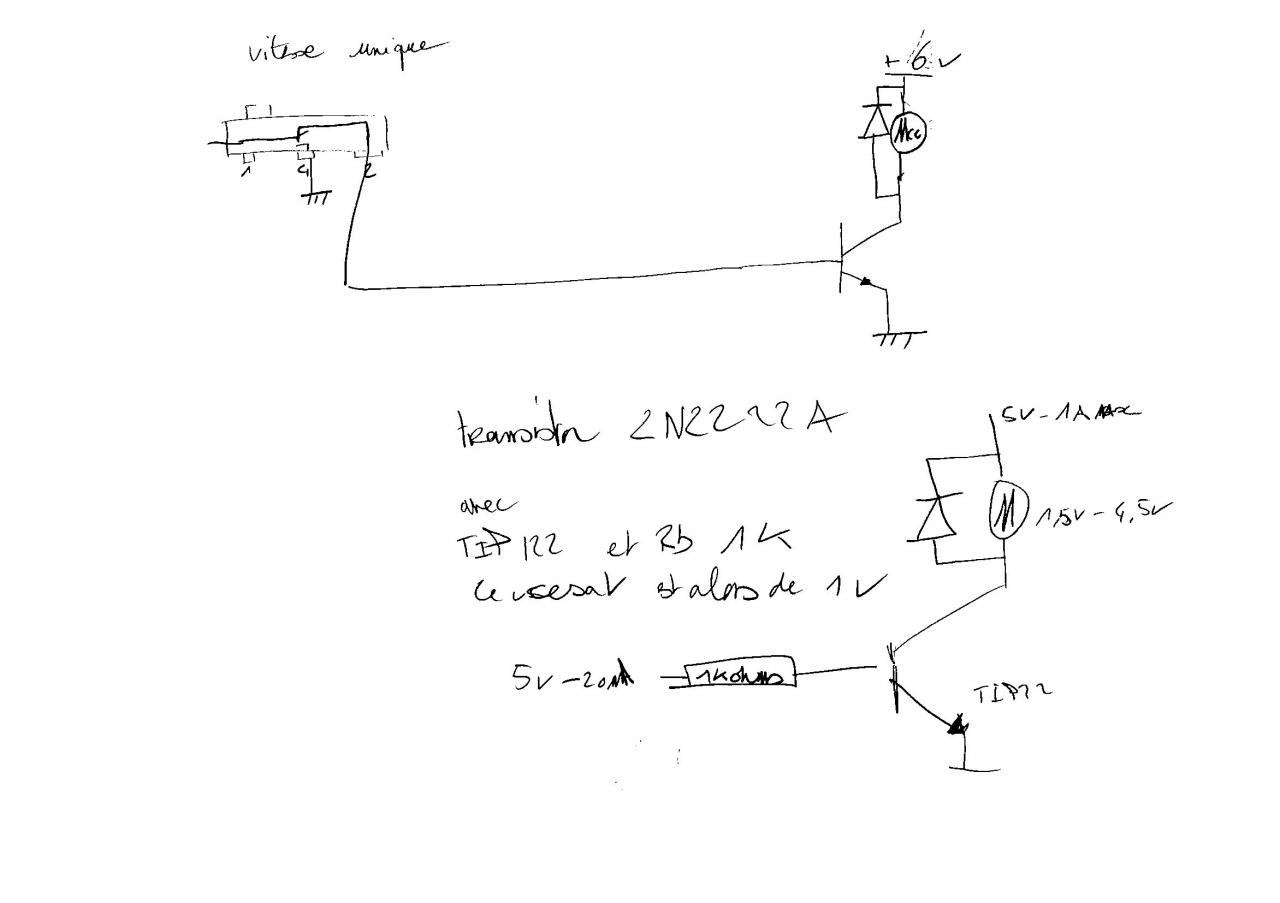 vitesse unique
+6v
Mcc
1 4 2
transistor 2N2222A
5V-1A max
avec
M 1,5v-4,5v
TIP122 et Rb 1K
le vcesat est alors de 1V
5v-20mA
1Kohms